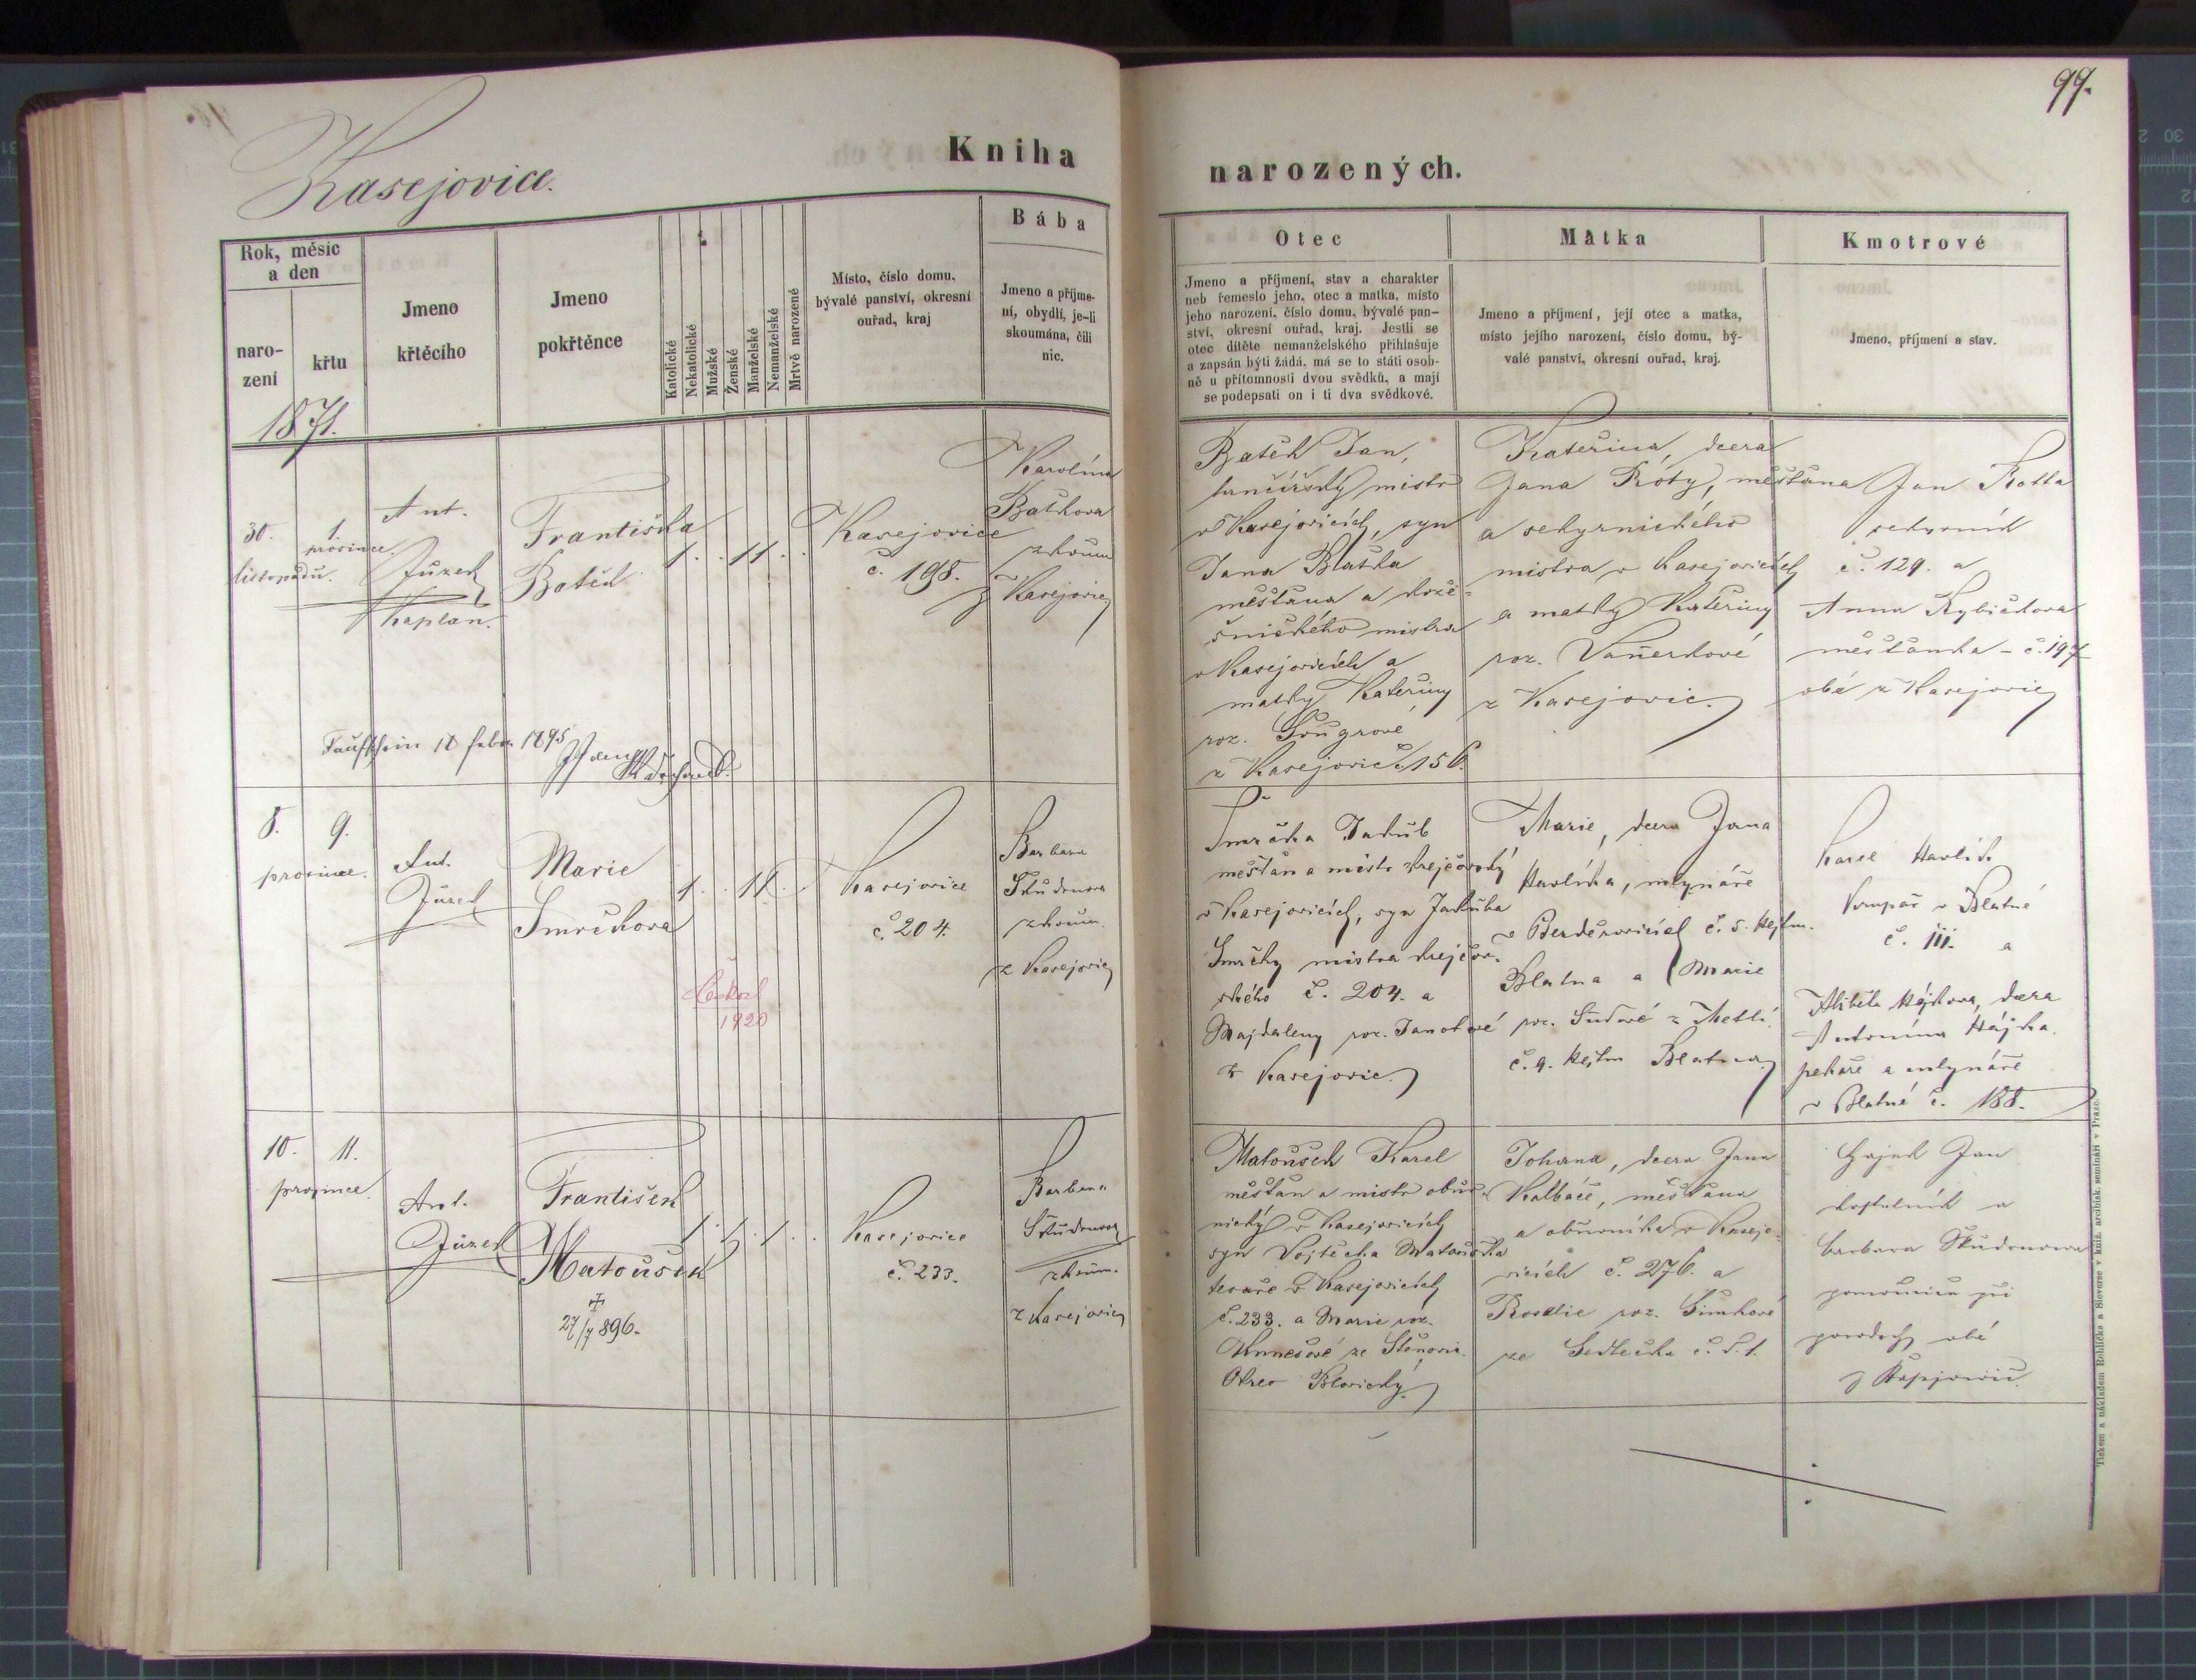 99.
Kasejovice.
Kniha
narozených.
Rok, měsíc
a den
naro-
zení
křtu
1871.
Jmeno
křtěcího
Jmeno
pokřtěnce
Katolické
Nekatolické
Mužské
Ženské
Manželské
Nemanželské
Mrtvě narozené
Místo, číslo domu,
bývalé panství, okresní
ouřad, kraj
Bába
Jmeno a příjme-
ní, obydlí, je-li
skoumána, čili
nic.
Otec
Jmeno a příjmení, stav a charakter
neb řemeslo jeho, otec a matka, místo
jeho narození, číslo domu, bývalé pan-
ství, okresní ouřad, kraj. Jestli se
otec dítěte nemanželského přihlašuje
a zapsán býti žádá, má se to státi osob-
ně u přítomnosti dvou svědků, a mají
se podepsati on i ti dva svědkové.
Matka
Jmeno a příjmení, její otec a matka,
místo jejího narození, číslo domu, bý-
valé panství, okresní ouřad, kraj.
Kmotrové
Jmeno, příjmení a stav.
30.
listopadu.
1.
prosince.
Ant.
Jůzek
Kaplan.
Františka
1 . . 1 1 . .
Kasejovice
č. 198.
Karolína
zkoum
z Kasejovic
Jan,
mistr
v Kasejovicích, syn
Jana
měštana a
mistra
v Kasejovicích a
matky Kateřiny
roz.
z Kasejovic č. 156.
Kateřina, dcera
Jana Róty, měštana
a
mistra v Kasejovicích
a matky Kateřiny
roz. Vaňerkové
z Kasejovic.
Jan Rotta
č. 129. a
Anna Rybičkova
měštanka - č. 197
obá z Kasejovic
Taufschein 18 febr. 1895
8.
prosince.
9.
Ant.
Jůzek
Marie
Smrčkova
1 . . 1 1 . .
1920
Kasejovice
č. 204.
Barbara
Studenova
zkoum.
z Kasejovic
Smrčka Jakub
měštan a mistr krejčovský
v Kasejovicích, syn Jakuba
Smrčky mistra krejčov-
ského č. 204. a
Majdaleny roz.
z Kasejovic.
Marie, dcera Jana
Havlíka, mlynáře
v č. 5. Hejtm.
Blatna a Marie
roz. z Metlí.
č. 9. Hejtm Blatna
Karel Havlík
Krupař v Blatné
č. 111. a
Hájkova, dcera
Antonína Hájka
pekaře a mlynáře
v Blatné č. 188.
10.
prosince.
11.
Ant.
Jůzek
František
Matoušek
27/7 896.
1 . 1 . 1 . .
Kasejovice
č. 233.
Barbara
Studenova
zkoum.
z Kasejovic
Matoušek Karel
měštan a mistr obuv-
nický v Kasejovicích
syn Vojtěcha Matouška
tesaře v Kasejovicích
č. 233. a Marie roz.
ze
Okres
Johana, dcera Jana
Kalbáče, měštana
a obuvníka v Kasejo-
vicích č. 276. a
Rosalie roz. Šimkové
ze Sedlečka č. d. 1.
Hajek Jan
kostelník a
Barbara Studenova
při
porodech obá
z Kasejovic.
Tiskem a nákladem Rohlíčka a Sieverse v kníž. arcibisk. semináři v Praze.